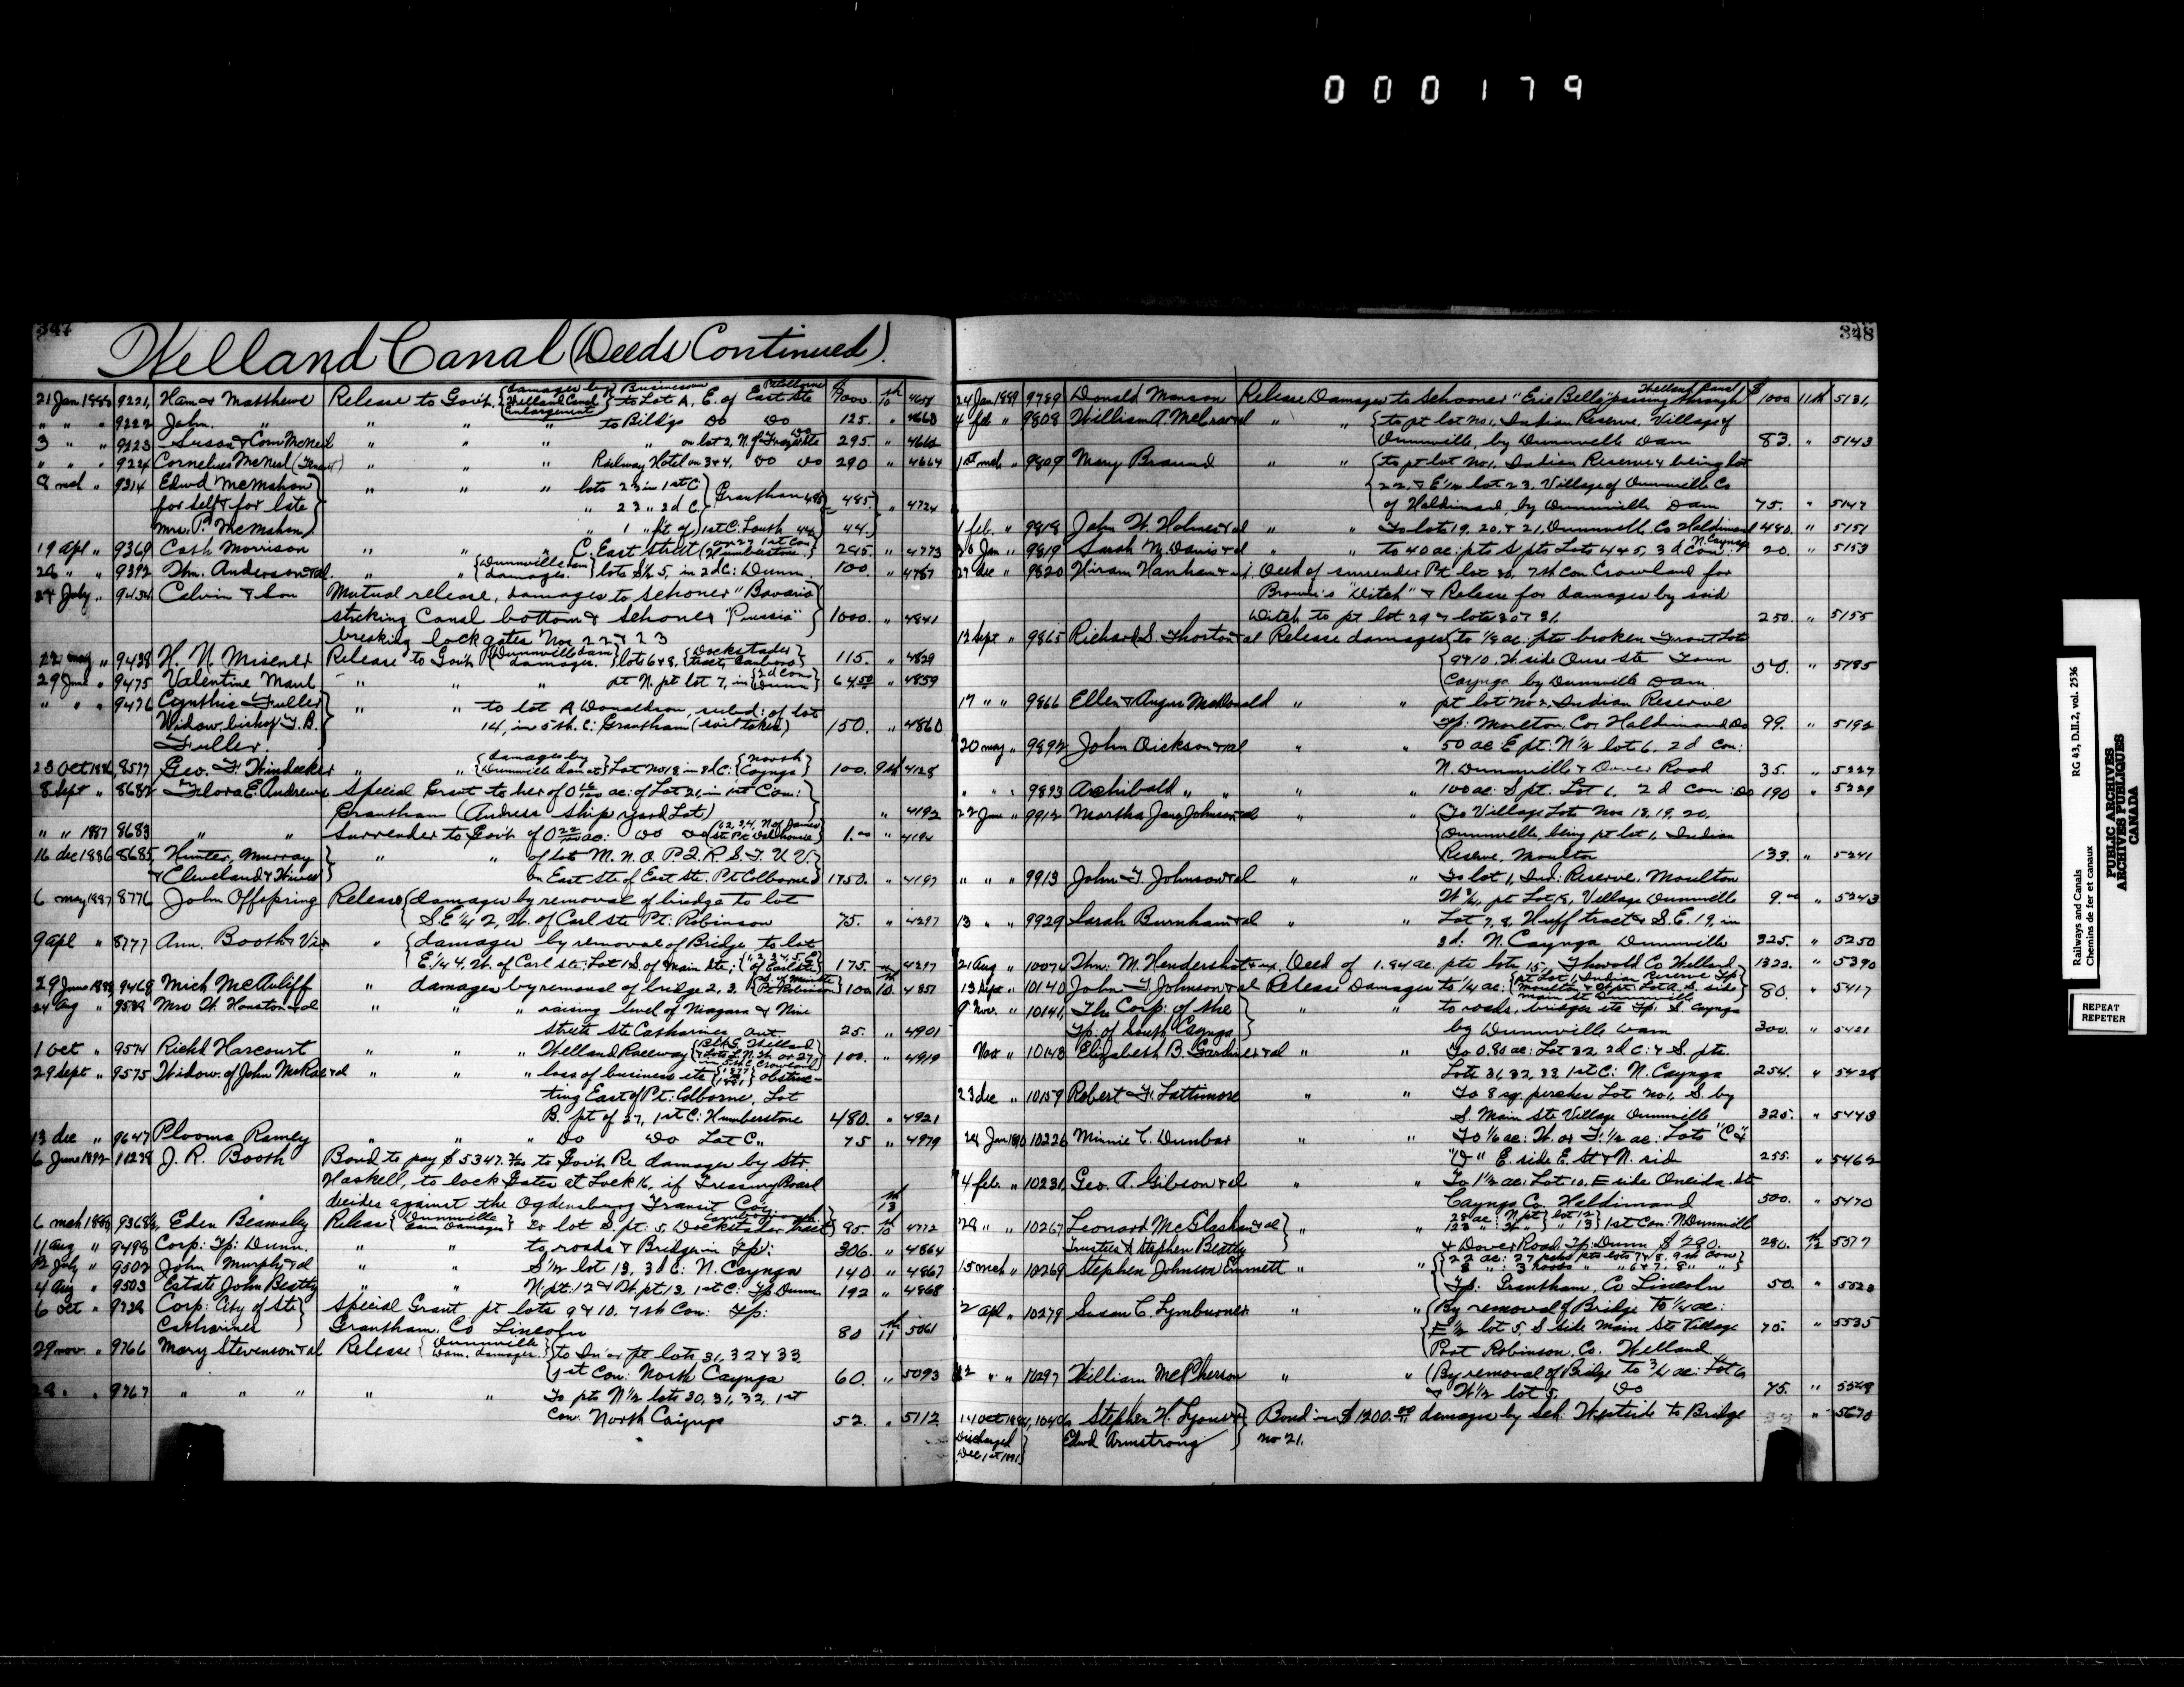 000179
347
Welland Canal (Deeds Continued).
21 Jan 1888 9221, Release to Govt, {damages by Welland Canal Enlargement} Business to Lot A, E. of East Ste Pt Colborne $ 1000. 10th
" " " 9222 John " " " " to Bild'gs Do Do 125. " 4660
3 " " 9223 Susan & Corn McNeil " " " " on lot 2, N. of 295 "
" " " 9224 Cornelius McNeil " " " Railway Hotel on 3 & 4, Do Do 290 " 4664
8 mch " 9314 Edwd McMahon " " " lots 23 in 1st C } Grantham 485
for self & for late " 23 " 2d C. 485 } " 4724
Mrs. P. McMahon " 1 " 1st C. Louth 44 44.
19 apl " 9369 Cath Morrison " " " C. East Street (on 27 1st Con Humberstone. 245. " 4773
28 " " 9392 Thn. Anderson & al. " " {Dunnville dam damages.} lots S½ 5, in 2d C: Dunn. 100. " 4787
24 July " 9454 Calvin & Son Mutual release, damages to Schoner "Bavaria"
striking Canal bottom & Schoner "Prussia" 1000. " 4841
breaking lock gates Nos 22 & 23
22 may " 9438 H. N. Misener Release to Govt {Dunnville dam damages.} lots 6 & 8, {Dockstader tract, Canboro} 115. " 4829
29 June " 9475 Valentine Maul " " " pt N. pt lot 7, in {2d Con Dunn} 64.50 " 4859
" " " 9476 Cynthia Fuller " " to lot A Donaldson, subd: of lot
Widow bishop T. B. 14, in 5th. C: Grantham (soil taken) 150. " 4860
Fuller.
23 Oct 1886 8577 Geo. F. Windecker " " {damages by Dunnville dam at} Lot No 18, in 3d C: {North Cayuga} 100. 9th 4128
8 Sept " 8682 Flora E. Andrews Special Grant to her of ac: of Lot 21, in 1st Con:
Grantham (Andrews Ship yard Lot) " 4192
" " 1887 8683 " " Surrender to Govt of ac: Do Do 1.00 " 4194
16 dec 1886 8685 Hunter, Murray " " of lot M. N. O. P. Q. R. S. T. U. V.
& Cleveland & Wives on East Ste of East Ste. Pt Colborne 1750. " 4197
6 may 1887 8776 John Offspring Release {damages by removal of bridge to lot
S. E ¼ 2, W. of Carl Ste Pt: Robinson 75. " 4297
9 apl " 8777 Ann. Booth & Vir " {damages by removal of Bridge to lot
E. ¼ 4, W. of Carl Ste: Lot 1 S. of Main Ste; 175. " 4297
29 June 1888 9468 Mich McAuliff " damages by removal of bridge 2, 3. 100 10. 4851
24 aug " 9539 Mrs W. Houston & al " " " raising level of Niagara & Nine
streets Ste Catharines Ont. 25. " 4901
1 Oct " 9574 Richd Harcourt " " " Welland Raceway 100. " 4919
29 Sept " 9575 Widow of John McRae & al " " " loss of business etc obstruc-
ting East of Pt: Colborne, Lot
B. pt of 27, 1st C: Humberstone 480. " 4921
13 dec " 9647 Plooma Ramey " " " Do Do Lot C. " 75 " 4979
6 June 1892 11238 J. R. Booth Bond to pay $5347. to Govt Re damages by Str.
Haskell, to lock Gates at Lock 16, if Treasury Board
decides against the Ogdensburg Transit Coy 13th
6 mch 1888 9368½ Eden Beamsley Release {Dunnville dam damages} to lot S. pt: 5, Dockstader Tract 85. 10th 4772
11 aug " 9498 Corp: Tp: Dunn. " " to roads & Bridges in Tp: 306. " 4864
12 July " 9502 John Murphy & al " " S ½ lot 13, 3d C: N. Cayuga 140 " 4867
4 aug " 9503 Estate John Beatty " " N. pt: 12 & W. pt 13, 1st C: Tp Dunn 192 " 4868
6 oct " Corp: City of Ste Special Grant, pt lots 9 & 10, 7th Con: Tp:
Catharines Grantham, Co Lincoln 80 11th 5061
29 nov. " 9766 Mary Stevenson & al Release {Dunnville Dam. damages} {to pt lots 31, 32 & 33
1st Con: North Cayuga 60. " 5093
" . " 9767 " " " " " To pts N ½ lots 30, 31, 32, 1st
Con: North Cayuga 52. " 5112
348
24 Jan 1889 9789 Donald Manson Release Damages to Schooner "Erie Belle" passing through Welland Canal $ 1000 11th 5131,
4 feb. " 9808 William A. McCraw & al " " {to pt lot No 1, Indian Reserve, Village of
Dunnville, by Dunnville Dam 83. " 5143
1st mch " 9809 Mary Braund " " {to pt lot No 1, Indian Reserve & being lot
22, & E ½ lot 23, Village of Dunnville Co
of Haldimand, by Dunnville Dam 75. " 5147
1 feb. " 9818 John W. Holmes & al " " To lots 19, 20, & 21, Dunnville, Co Haldimand 480. " 5151
26 Jan " 9819 Sarah M. Davis & al " " to 40 ac: pts S pts Lots 4 & 5, 3d Con: N. Cayuga 20. " 5153
27 dec " 9820 Hiram Hanhan Deed of surrender Pt lot 30, 7th Con. Crowland for
Brown's "Ditch" & Release for damages by said
Ditch to pt lot 29 & lots 30 & 31. 250. " 5155
12 Sept " 9865 Richard S. Thorton & al Release damages {to 1/8 ac: pts broken Front Lot
9 & 10, W. side Ouse Ste Town
Cayuga by Dunnville Dam 50. " 5185
17 " " 9866 Ellen & Angus McDonald " " pt lot No 2, Indian Reserve
Tp: Moulton Co, Haldimand Do 99. " 5192
20 may " 9892 John Dickson & al " " 50 ac: E pt: N ½ lot 6, 2d Con:
N. Dunnville & Dover Road 35. " 5227
" " " 9893 Archibald " " " " 100 ac: S pt: Lot 6, 2d Con: Do 190 " 5229
22 June " 9912 Martha Jane Johnson & al " " To Village Lot Nos 18, 19, 20,
Dunnville, being pt lot 1, Indian
Reserve, Moulton 133. " 5241
" " " 9913 John T. Johnson & al " " To lot 1, Ind: Reserve, Moulton
W ¾, pt Lot 18, Village Dunnville 9.00 " 5243
13 " " 9929 Sarah Burnham & al " " Lot 7, 8, Huff tract & S. E. 19, in
3d: N. Cayuga Dunnville 325. " 5250
21 Aug " 10074 Thn: M. Hendershot & ux. Deed of 1.94 ac. pts lots 15, Thorold Co Welland 1322. " 5390
13 Sept " 10140 John T Johnson & al Release Damages to ¼ ac: {pt Lot 1, Indian Reserve Tp: Moulton & W pt: Lot A. S. side main St Dunnville 80. " 5417
9 Nov. " 10141, The Corp: of the " " to roads, bridges etc Tp: S. Cayuga
Tp: of South Cayuga by Dunnville Dam 300. " 5421
Nov " 10143 Elizabeth B. Gardiner & al " " To 0.80 ac: Lot 32, 2d C: & S. pts.
Lots 31, 32, 33 1st C: N. Cayuga 254. "
23 dec " 10159 Robert F. Lattimore " " To 8 sq. perches Lot No 1, S. by
S. Main Ste Village Dunnville 325. " 5443
24 Jan 1890 10226 Minnie C. Dunbar " " To 1/6 ac: W. or F. ½ ac: Lots "C" &
"D" E. side E. St & N. side 255. " 5462
4 feb. " 10231, Geo. A. Gibson & al " " To 1½ ac: Lot 10, E side Oneida St
Cayuga Co. Haldimand 500. " 5470
28 " " 10267 Leonard McGlashan & al " " 1st Con: N Dunnville
Trustees & Stephen Beatty & Dover Road Tp: Dunn $290. 280. 12th 5577
15 mch " 10269 Stephen Johnson Emmett " " {22 ac: 27 pchs pts lots 7 & 8, 9th Con
Tp: Grantham, Co Lincoln 50. " 5523
2 apl " 10279 Susan C. Lymburner " " (By removal of Bridge to ¼ ac:
E ½ lot 5, S side Main Ste Village 75. " 5535
Port Robinson, Co. Welland
12 " " 10297 William McPherson " " (By removal of Bridge to ¾ ac: Lot 6
& W ½ lot 5. Do 75. "
14 Oct Stephen H. Lyons & Bond in $1200.00 damages by Sch. Westside to Bridge " 5670
Discharged Edwd Armstrong No 21.
Dec 1st 1891
Railways and Canals
Chemins de fer et canaux
RG 43, D.II.2, vol. 2536
PUBLIC ARCHIVES
ARCHIVES PUBLIQUES
CANADA
REPEAT
REPETER